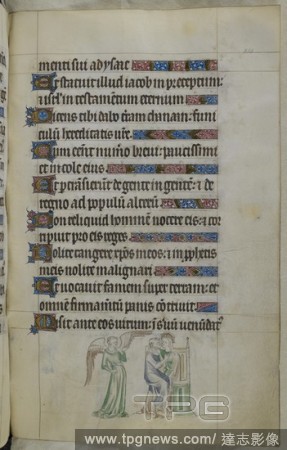 menti sui ad ysaac
Et statuit illud iacob in preceptum:
et isrl in testamentum eternum
Dicens tibi dabo terram chanaan: funi
culum hereditatis vestre.
Cum essent numero brevi: paucissimi
et incole eius.
Et pertransierunt de gente in gentem: et de
regno ad populum alterum.
Non reliquid hominem nocere eis: et cor
ripuit pro eis reges.
Nolite tangere christos meos: et in prophetis
meis nolite malignari.
Et vocavit famem super terram: et
omne firmamentum panis contrivit.
Misit ante eos virum: in servum venundatus
TPG
www.tpgnews.com/達志影像